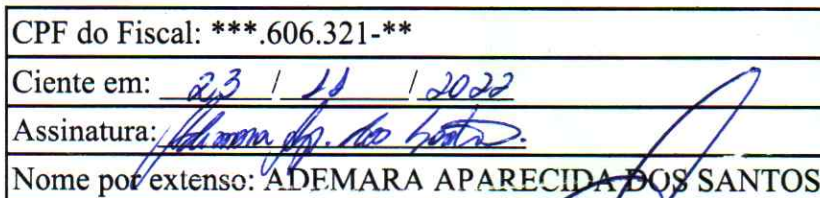 CPF do Fiscal: ***.606.321-**
Ciente em: 23 / 11 / 2022
Assinatura: Ademara Ap. dos Santos.
Nome por extenso: ADEMARA APARECIDA DOS SANTOS